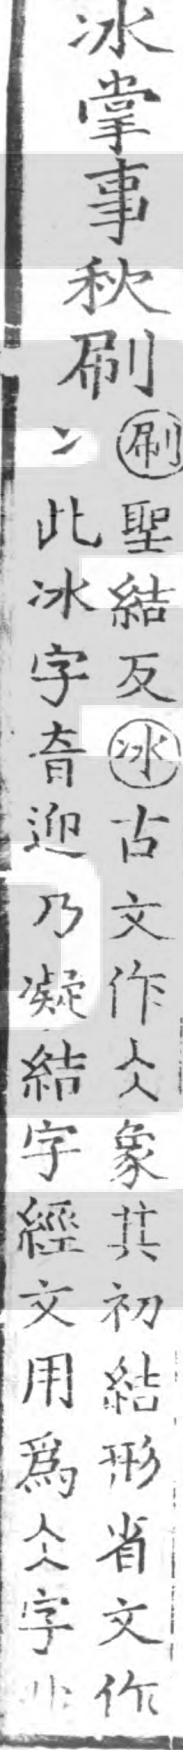 冰掌事秋刷
刷聖結反冰古文作仌象其初結形省文作
冫此冰字音迎乃凝結字經文用爲仌字非